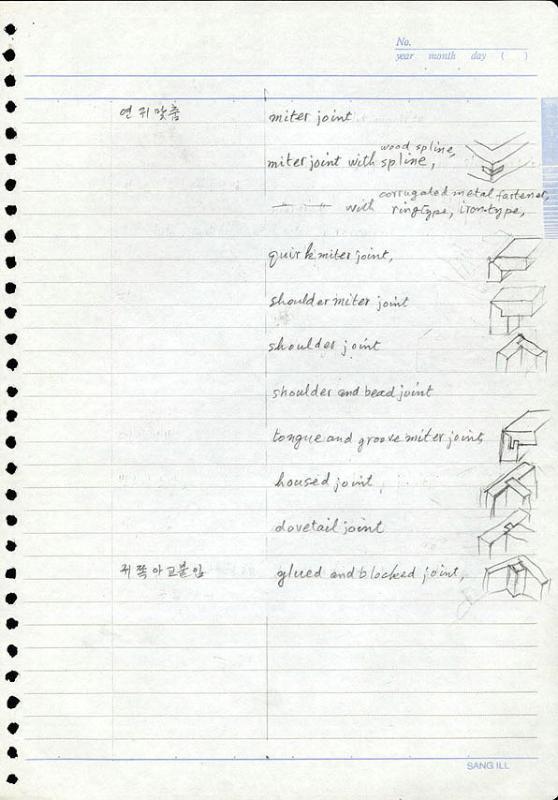 No.
year month day ( )
연귀맞춤 miter joint
wood spline,
miter joint with spline,
corrugated metal fastener,
with ringtype, iron-type,
quirk miter joint,
shoulder miter joint
shoulder joint
shoulder and bead joint
tongue and groove miter joint,
housed joint,
dovetail joint
귀쪽아교붙임 glued and blocked joint,
SANG ILL